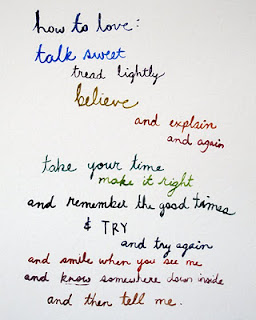 how to love:
talk sweet
tread lightly
believe
and explain
and again
take your time
make it right
and remember the good times
& TRY
and try again
and smile when you see me
and know somewhere down inside
and then tell me.